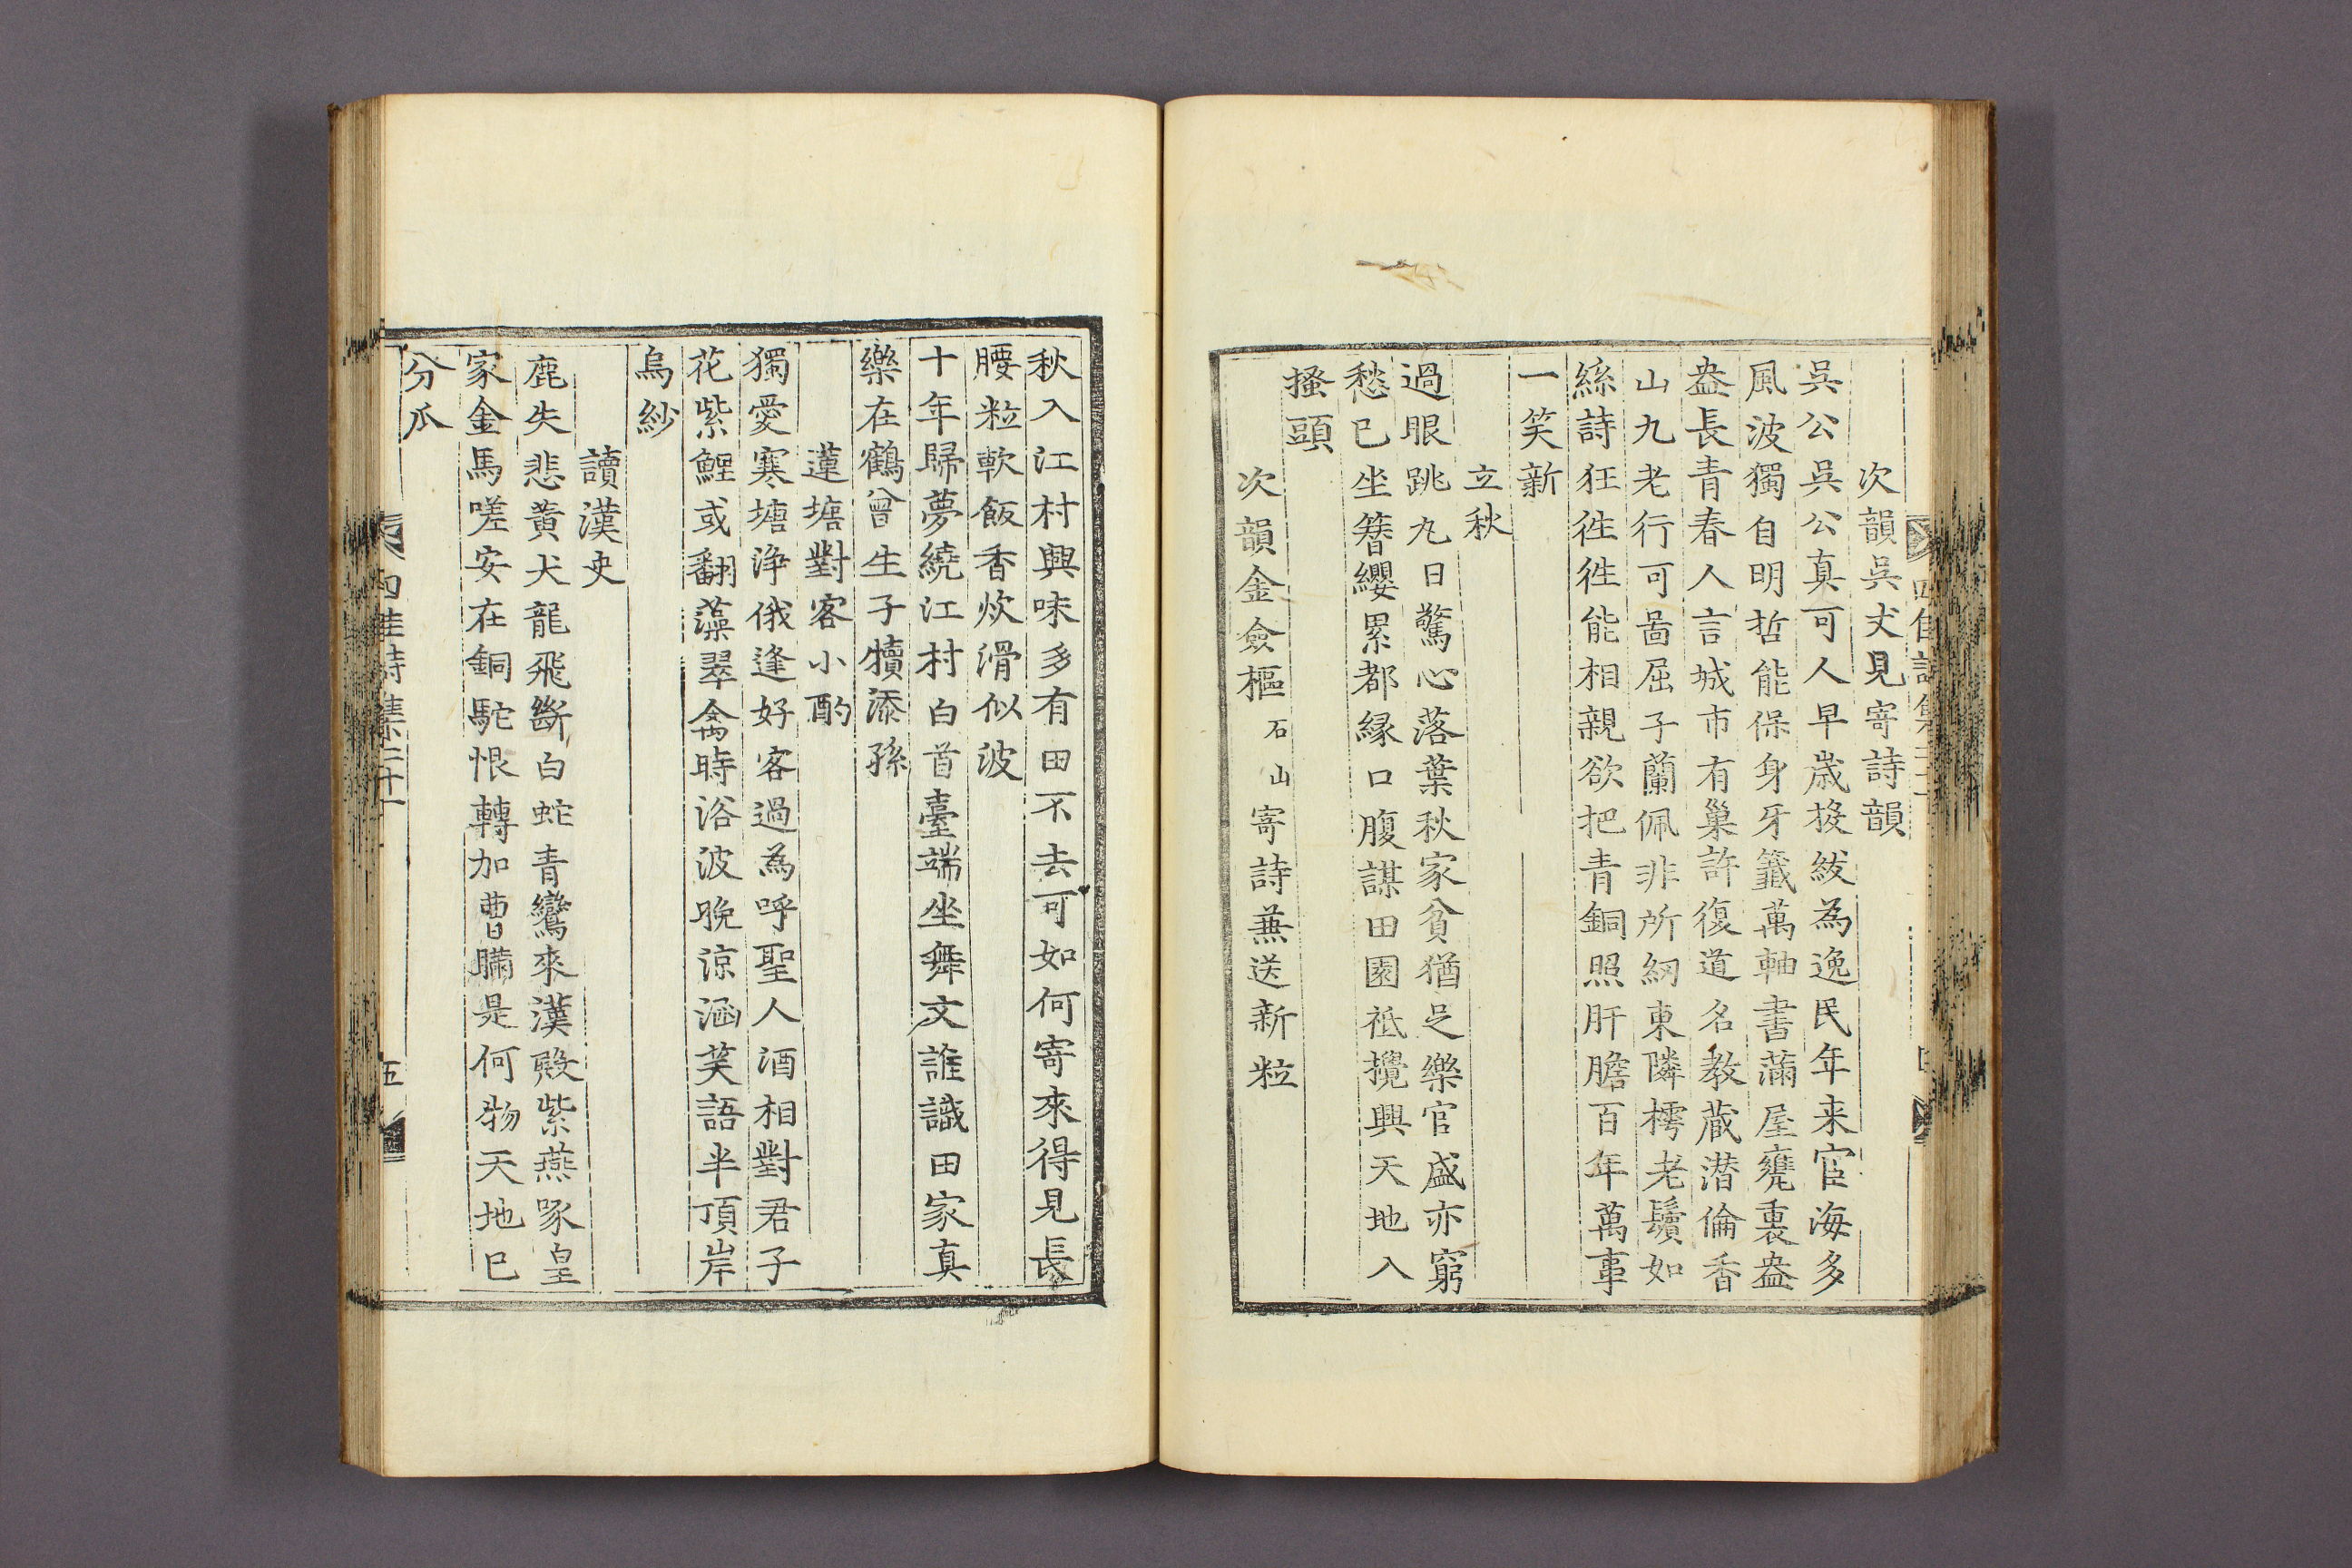 次韻吳丈見寄詩韻
吳公吳公真可人早歲投紱為逸民年来宦海多
風波獨自明哲能保身牙籤萬軸書滿屋甕裏盎
盎長青春人言城市有巢許復道名教蔵潜倫香
山九老行可啚屈子蘭佩非所紉東隣樗老鬚如
絲詩狂徃徃能相親欲把青銅照肝膽百年萬事
一笑新
立秋
過眼跳丸日驚心落葉秋家貧猶足樂官盛亦窮
愁已坐簪纓累都緣口腹謀田園祗攪興天地入
搔頭
次韻金僉樞石山寄詩蒹送新粒
秋入江村興味多有田不去可如何寄來得見長
腰粒軟飯香炊滑似波
十年歸夢繞江村白首臺端坐舞文誰識田家真
樂在鶴曾生子犢添孫
蓮塘對客小酌
獨愛寒塘浄俄逢好客過為呼聖人酒相對君子
花紫鯉或翻藻翠禽時浴波晚涼涵笑語半頂岸
烏紗
讀漢史
鹿失悲黃犬龍飛斷白蛇青鸞來漢殿紫燕啄皇
家金馬嗟安在銅駝恨轉加曹瞞是何物天地已
分瓜
四佳詩集二十一
五